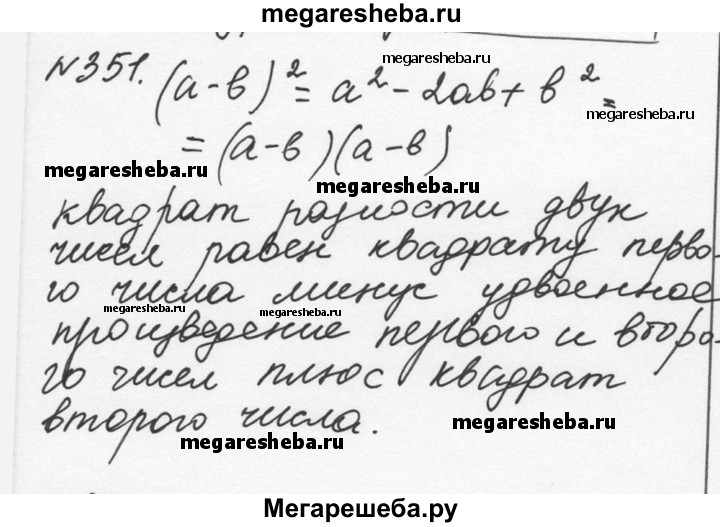 megaresheba.ru
№351. (a-b)² = a² - 2ab + b² =
megaresheba.ru
= (a-b)(a-b)
megaresheba.ru
megaresheba.ru
квадрат разности двух
чисел равен квадрату перво-
го числа минус удвоенное
megaresheba.ru
megaresheba.ru
произведение первого и второ-
го чисел плюс квадрат
второго числа.
megaresheba.ru
megaresheba.ru
Мегарешеба.ру